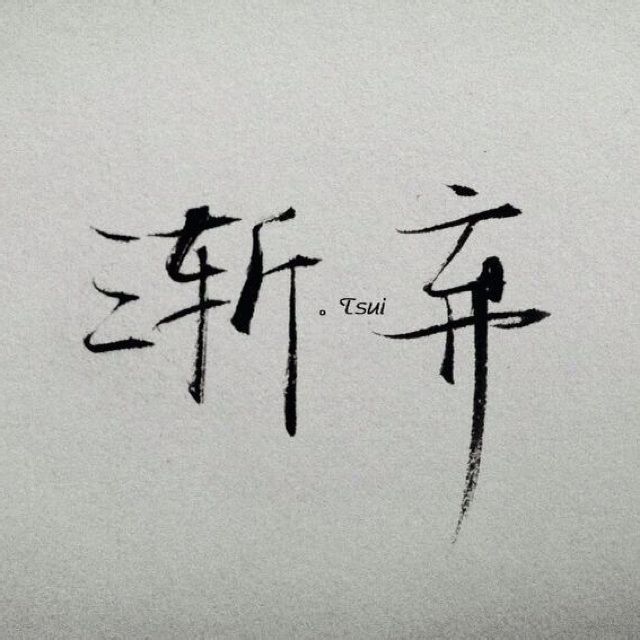 渐弃
。Tsui